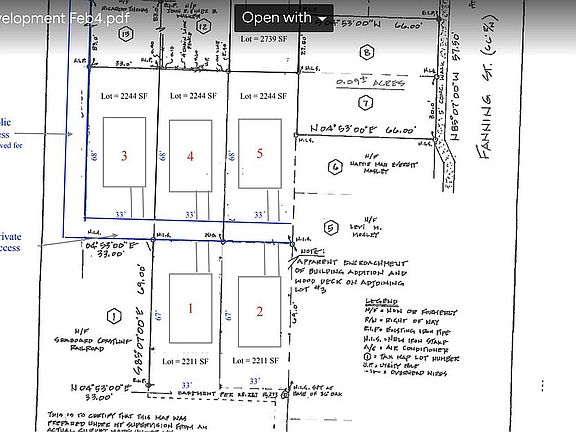 velopment Feb4.pdf
Open with
04°53'00"W 66.00'
Lot = 2739 SF
13
12
8
33.0'
0.09± ACRES
7
Lot = 2244 SF
Lot = 2244 SF
Lot = 2244 SF
N 85°07'00" W 57.50'
FANNING ST.
N 04°53'00"E 66.00'
N.I.S.
blic
ess
ved for
68'
3
68'
4
68'
5
6
N/F
HATTIE MAE EVERETT
MOSLEY
33'
33'
33'
5
N/F
LEVI H.
MOSLEY
rivate
ccess
N.I.S.
N.I.S.
N.I.S.
04°53'00"E
33.00'
NOTE:
APPARENT ENCROACHMENT
OF BUILDING ADDITION AND
WOOD DECK ON ADJOINING
LOT #3
S85°07'00"E 69.00'
67'
1
67'
2
69.0'
1
N/F
SEABOARD COASTLINE
RAILROAD
LEGEND
N/F = NOW OR FORMERLY
R/W = RIGHT OF WAY
E.I.P. = EXISTING IRON PIPE
N.I.S. = NEW IRON STAKE
A/C = AIR CONDITIONER
① = TAX MAP LOT NUMBER
U.P. = UTILITY POLE
OVERHEAD WIRES
Lot = 2211 SF
Lot = 2211 SF
33'
33'
N 04°53'00"E
33.00'
E.I.P.
EASEMENT PER
N.I.S. SET AT
BASE OF 36" OAK
THIS IS TO CERTIFY THAT THIS MAP WAS
PREPARED UNDER MY SUPERVISION FROM AN